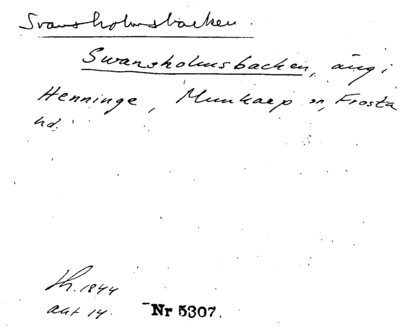 Svansholmsbacken.
Swansholmsbacken, äng i
Henninge, Munkarp sn, Frosta
hd.
Lh. 1844
akt 14. Nr 5307.